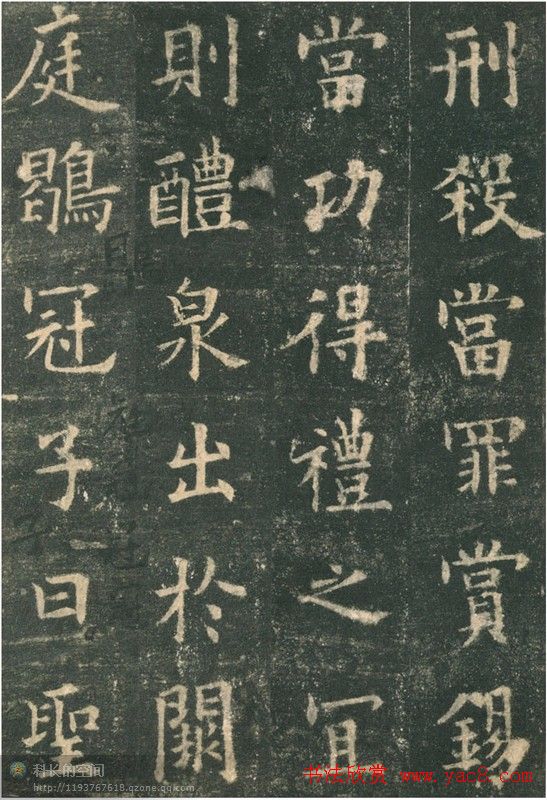 刑殺當罪賞錫
當功得禮之冝
則醴泉出於闕
庭鶡冠子曰聖
科长的空间
http://1193767618.qzone.qq.com
书法欣赏 www.yac8.com